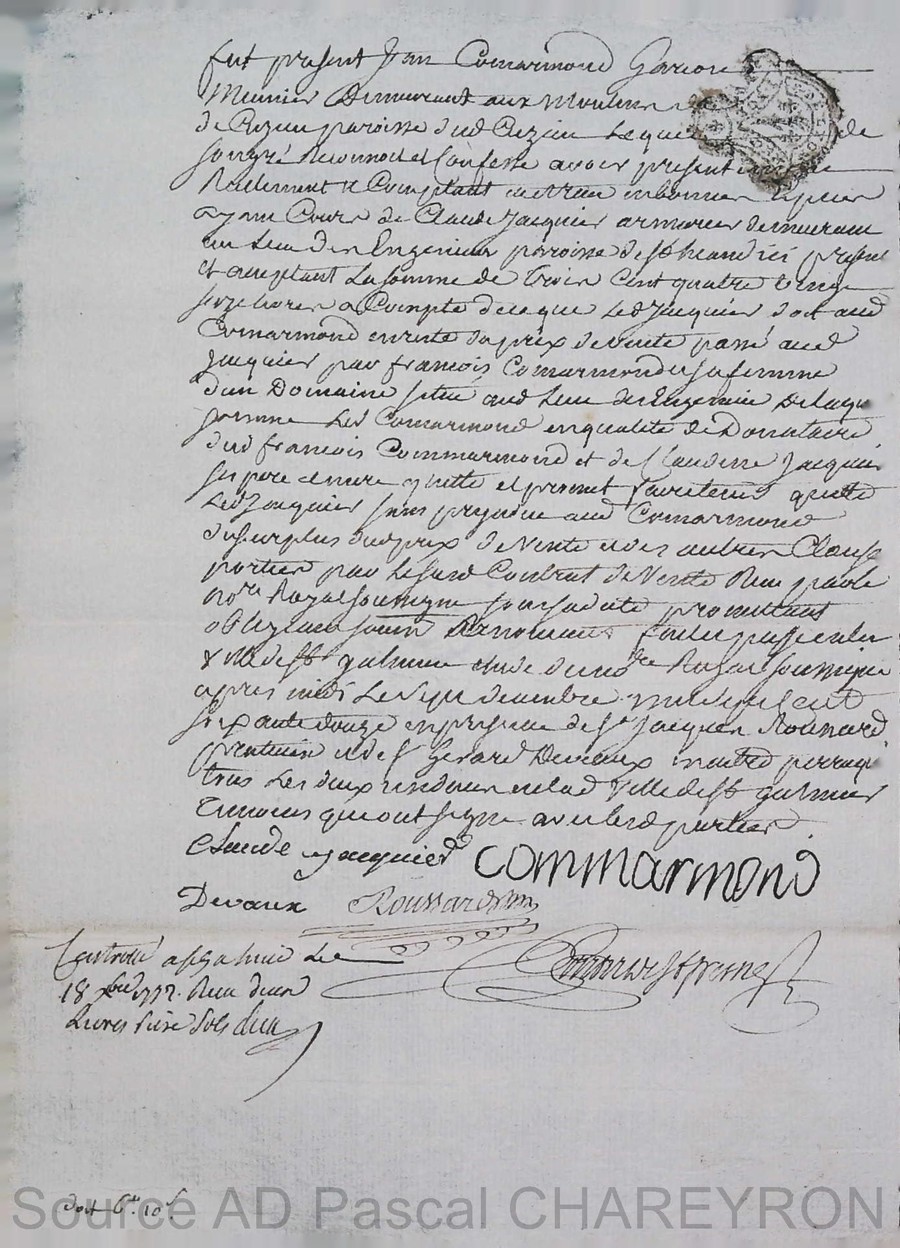 fut présent Jean Comarmond Garçon
Meunier Demeurant aux Moulins
de Cuzieu paroisse dud Cuzieu Lequel de
son gré Reconnoit et Confesse avoir présentement
Reellement et Comptant en bonnes Espèces
ayant Cours de Claude Jacquier armurier demeurant
au Lieu des Engenieux paroisse de ici présent
et acceptant La somme de Trois Cent quatre vingt
seize livres a Compte de ce que Led Jacquier doit aud
Comarmond en reste du prix de vente passé aud
Jacquier par francois Comarmond et sa femme
d'un Domaine scitué aud Lieu des Engenieux De laque
somme Led Comarmond en qualité de Donataire
dud francois Commarmond et de Claudine Jacquier
ses pere et mere quitte et promet faire tenir quitte
Led Jacquier sans prejudice aud Comarmond
du surplus dud prix de Vente et des autres Clauses
portées par Le susd Contrat de Vente Reçu par le
no.re Royal soussigné sous sa datte promettant
obligeant soumis Renonçant fait et passé en la
Ville de St galmier etude du no.re Royal soussigné
après midi Le Sept decembre mil sept cent
soixante douze en présence de Sr Jacques Roussard
praticien et de Sr Gerard Devaux maitre perruqu
Tous Les deux residants en lad Ville de St galmier
Temoins qui ont signé avec lesd parties
Claude jacquier commarmond
Devaux Roussard
Controllé a St galmier Le
18 xbre 1772. Reçu deux
Livres seize Sols
doit 6lt 10s
Source AD Pascal CHAREYRON